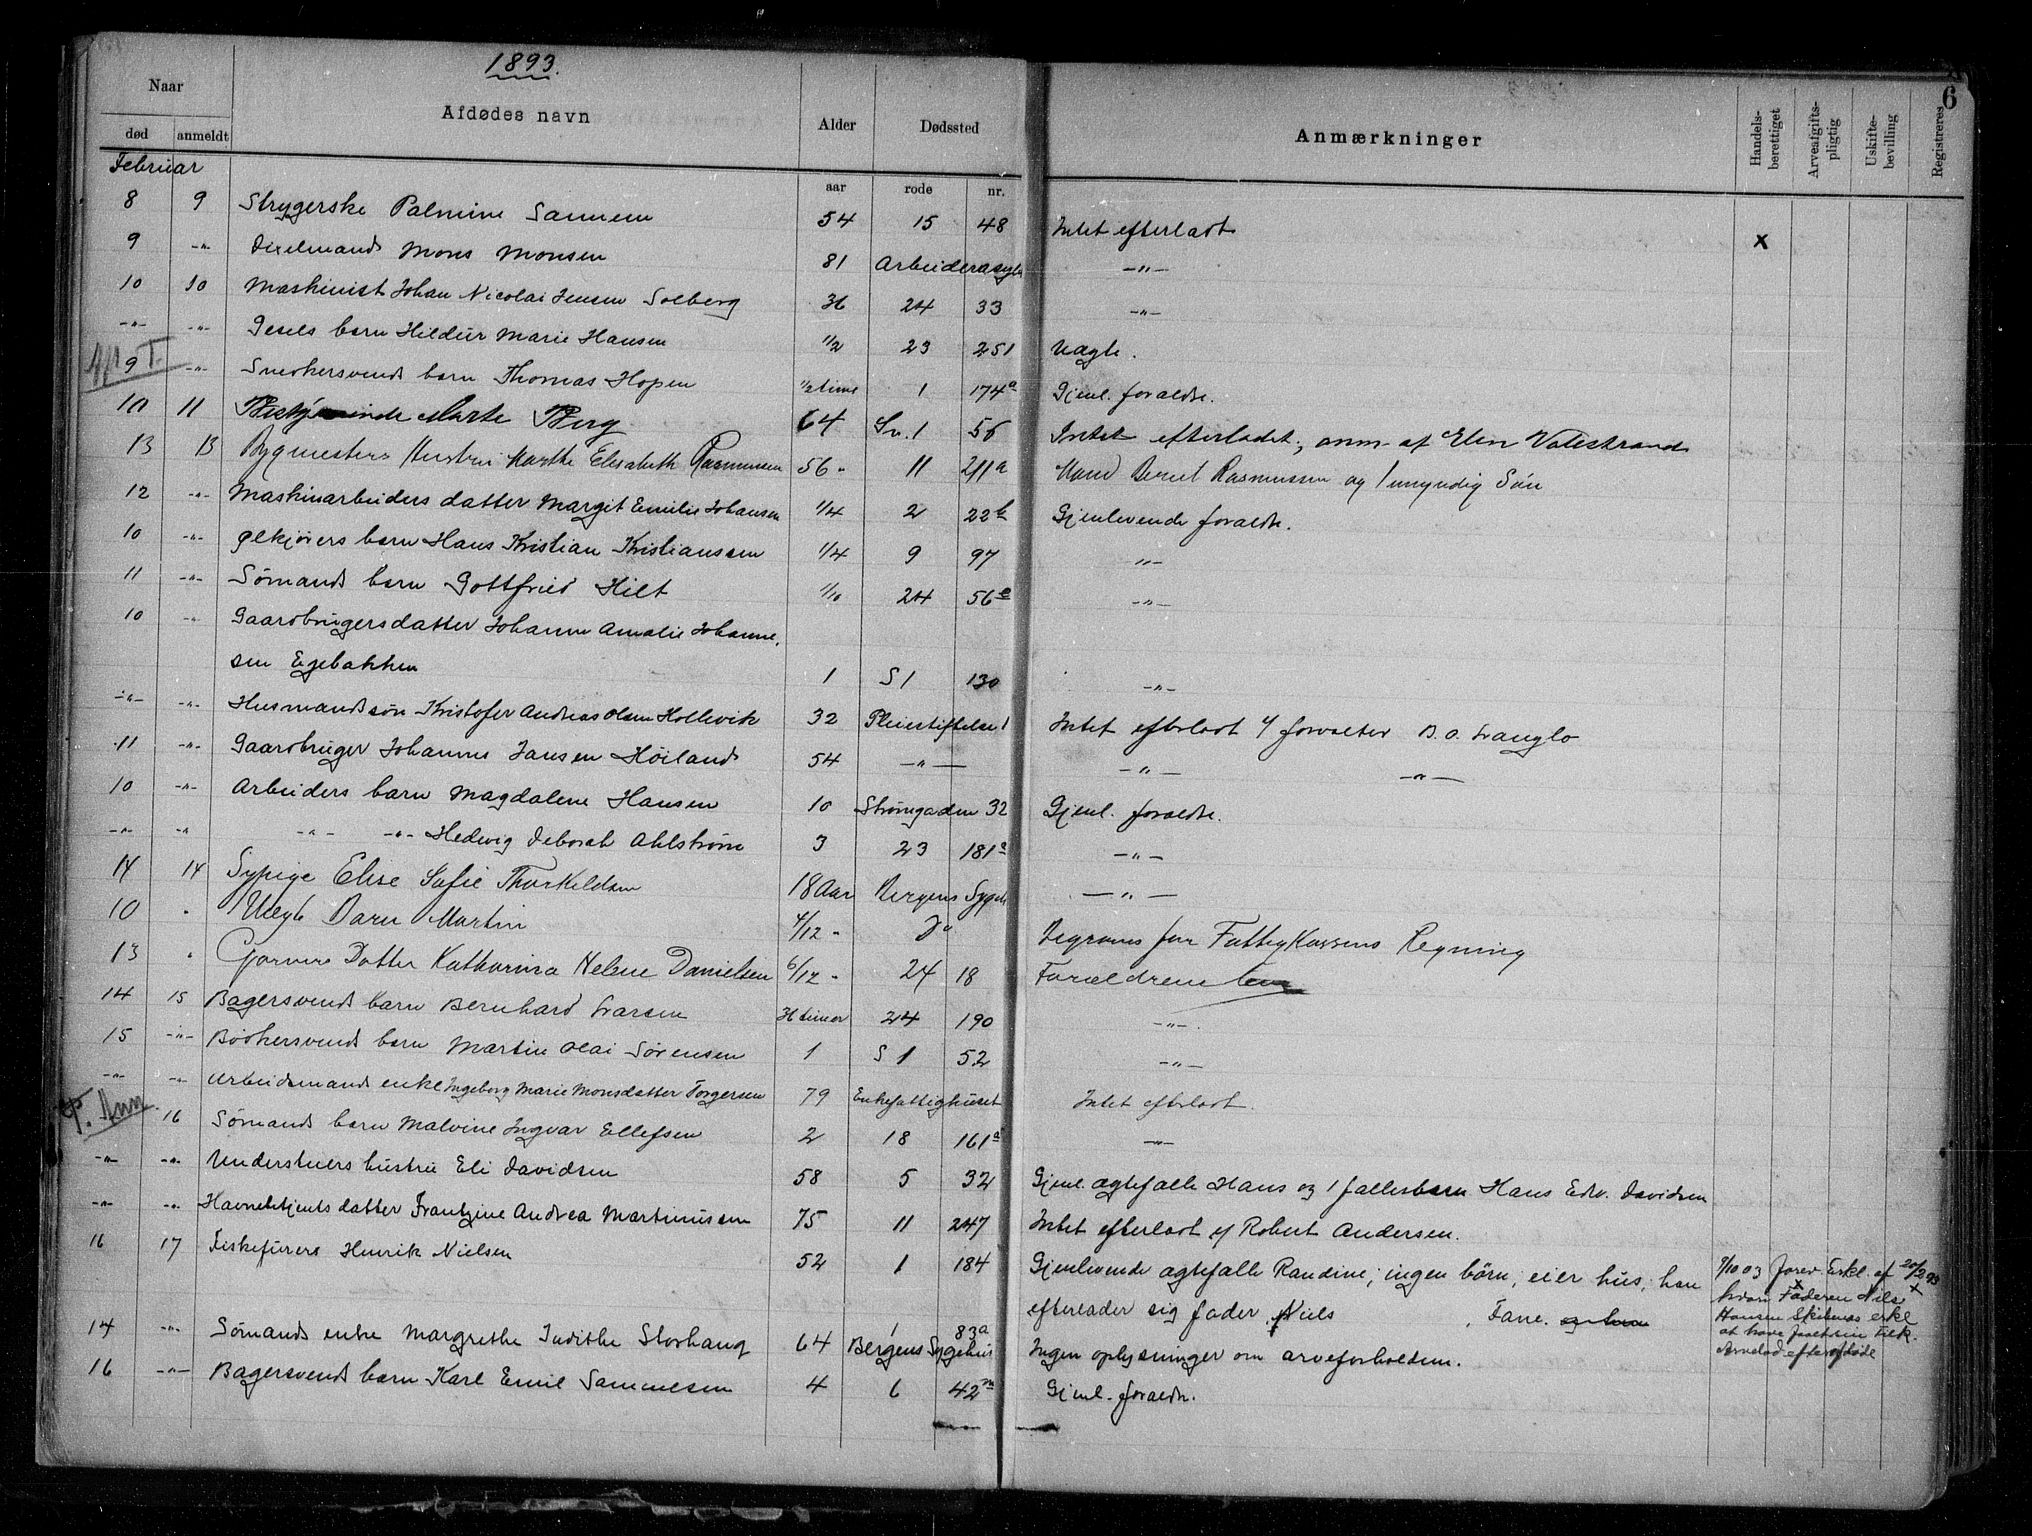 1893.
6
Naar
Afdødes navn
Alder
Dødssted
Anmærkninger
Handels-berettiget
Arveafgifts-pligtig
Uskifte-bevilling
Registreres
død anmeldt
aar rode nr.
Februar
8 9 Strygerske Palmine Sannem 54 15 48 Intet efterladt x
9 -"- Mons Monsen 81 Arbeiderasyl -"-
10 10 Maskinist Johan Nicolai Jensen Solberg 36 24 33 -"-
-"- -"- barn Hildur Marie Hansen 1/2 23 251 Uægte.
9 -"- Snedkersvends barn Thomas Hopen 1/2 time 1 174a Gjenl. forældre.
10 11 Marte Berg 64 Sv. 1 56 Intet efterladet; anm. af Elen Valestrand
13 13 Bygmesters Hustru Marthe Elisabeth Rasmussen 56 - 11 211a Mand Berent Rasmussen og 1 umyndig Søn
12 -"- Maskinarbeiders datter Margit Emilie Johansen 1/4 2 22b Gjenlevende forældre.
10 -"- Ølkjørers barn Hans Kristian Kristianssen 1/4 9 97 -"-
11 -"- Sømands barn Gottfried Hilt 1/10 24 56e -"-
10 -"- Gaardbrugers datter Johanne Amalie Johanne-
sen Egebakken 1 S 1 130 -"-
-"- -"- Husmandssøn Kristofer Andreas Olsen Hollevik 32 Pleiestiftelse 1 Intet efterladt forvalter B. O. Langlo
11 -"- Gaardbruger Johannes Jansen Høiland 54 -"- -"- -"-
10 -"- Arbeiders barn Magdalene Hansen 10 Strømgaden 32 Gjenl. forældre.
-"- -"- -"- -"- Hedevig Deborah Ahlstrøm 3 23 181a -"-
14 14 Sypige Elise Sofie Thorkildsen 18 Aar Bergens Sygeh -"-
10 " Uægte Barn Martin 4/12 - Do Begraves for Fattigkassens Regning
13 " Garvers Datter Katharina Helene Danielsen 6/12 - 24 18 Forældrene leve
14 15 Bagersvends barn Bernhard Larsen timer 24 190 -"-
15 -"- Bødkersvends barn Martin Olai Sørensen 1 S 1 52 -"-
-"- -"- Arbeidsmands enke Ingeborg Marie Monsdatter Torgersen 79 Enkefattighuset Intet efterladt.
16 Sømands barn Malvine Ingvar Ellefsen 2 18 161a -"-
-"- -"- hustru Eli Davidsen 58 5 32 Gjenl. ægtefælle Hans og 1 fællesbarn Hans Edv. Davidsen
-"- -"- Havnebetjents datter Frantzine Andrea Martinussen 75 11 247 Intet efterladt Robert Andersen.
16 17 Fiskefører Henrik Nielsen 52 1 184 Gjenlevende ægtefælle Randine; ingen børn; eier hus; han
efterlader sig fader Niels Fane.
9/10 03 Erkl. af 20/2 93
hvori Faderen Nils
Hansen erkl
at have
14 -"- Sømands enke Margrethe Judithe Storhaug 64 Bergens Sygehus 1 83a Ingen oplysninger om arveforholdene.
16 -"- Bagersvends barn Karl Emil Samuelsen 4 6 42 Gjenl. forældre.